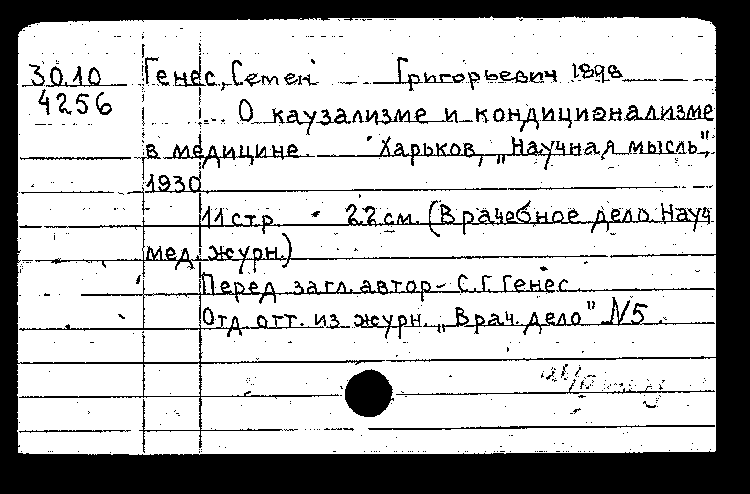 30.10 Генес, Семен Григорьевич 1898
4256 О каузализме и кондиционализме
в медицине. Харьков, „Научная мысль",
1930
11 стр. 22 см. (Врачебное дело. Науч
мед. журн.)
Перед загл. автор - С. Г. Генес
Отд. отт. из журн. „Врач. дело" N5.